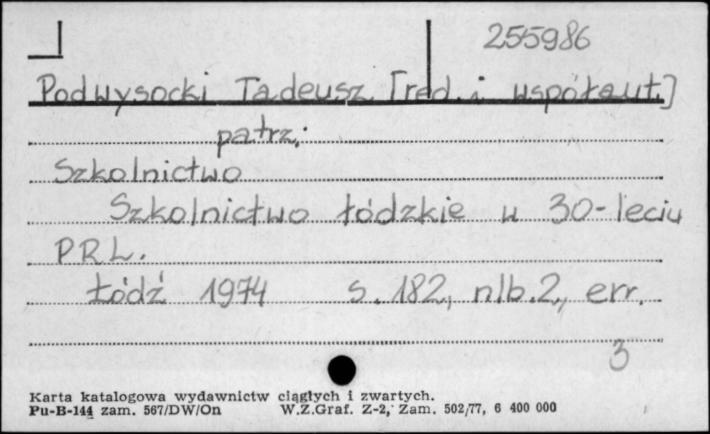 255986
Podwysocki Tadeusz [red. i współaut.]
patrz:
Szkolnictwo
Szkolnictwo łódzkie w 30-leciu
PRL.
Łódź 1974 s. 182, nlb. 2, err.
3
Karta katalogowa wydawnictw ciągłych i zwartych.
Pu-B-144 zam. 567/DW/On W.Z.Graf. Z-2, Zam. 502/77, 6 400 000